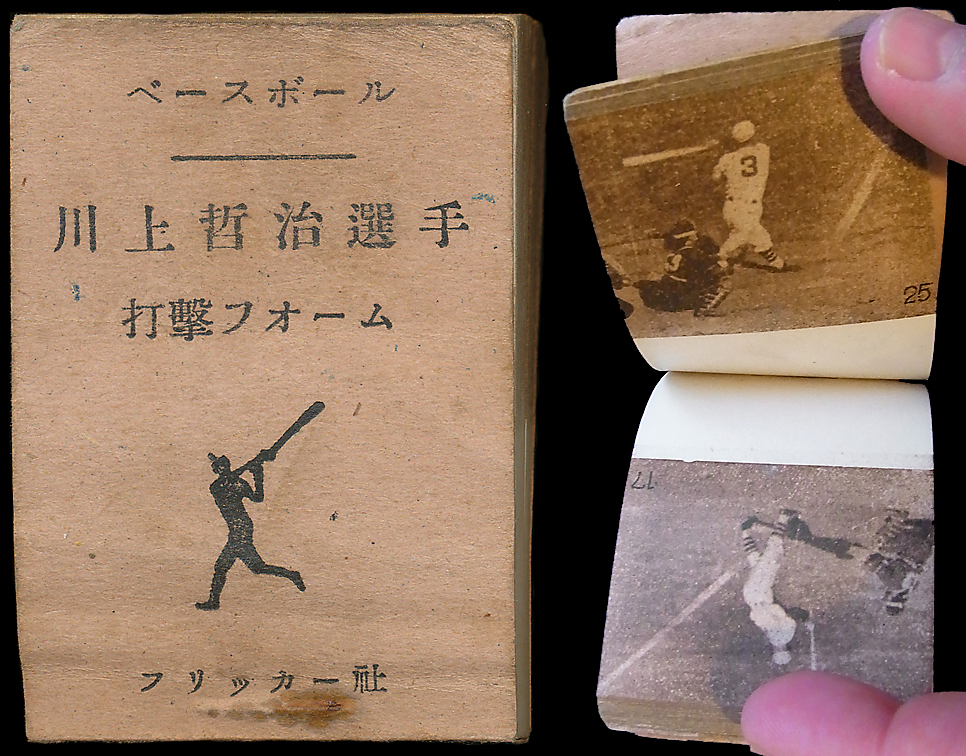 ベースボール
川上哲治選手
打擊フォーム
フリッカー社
3
25
17